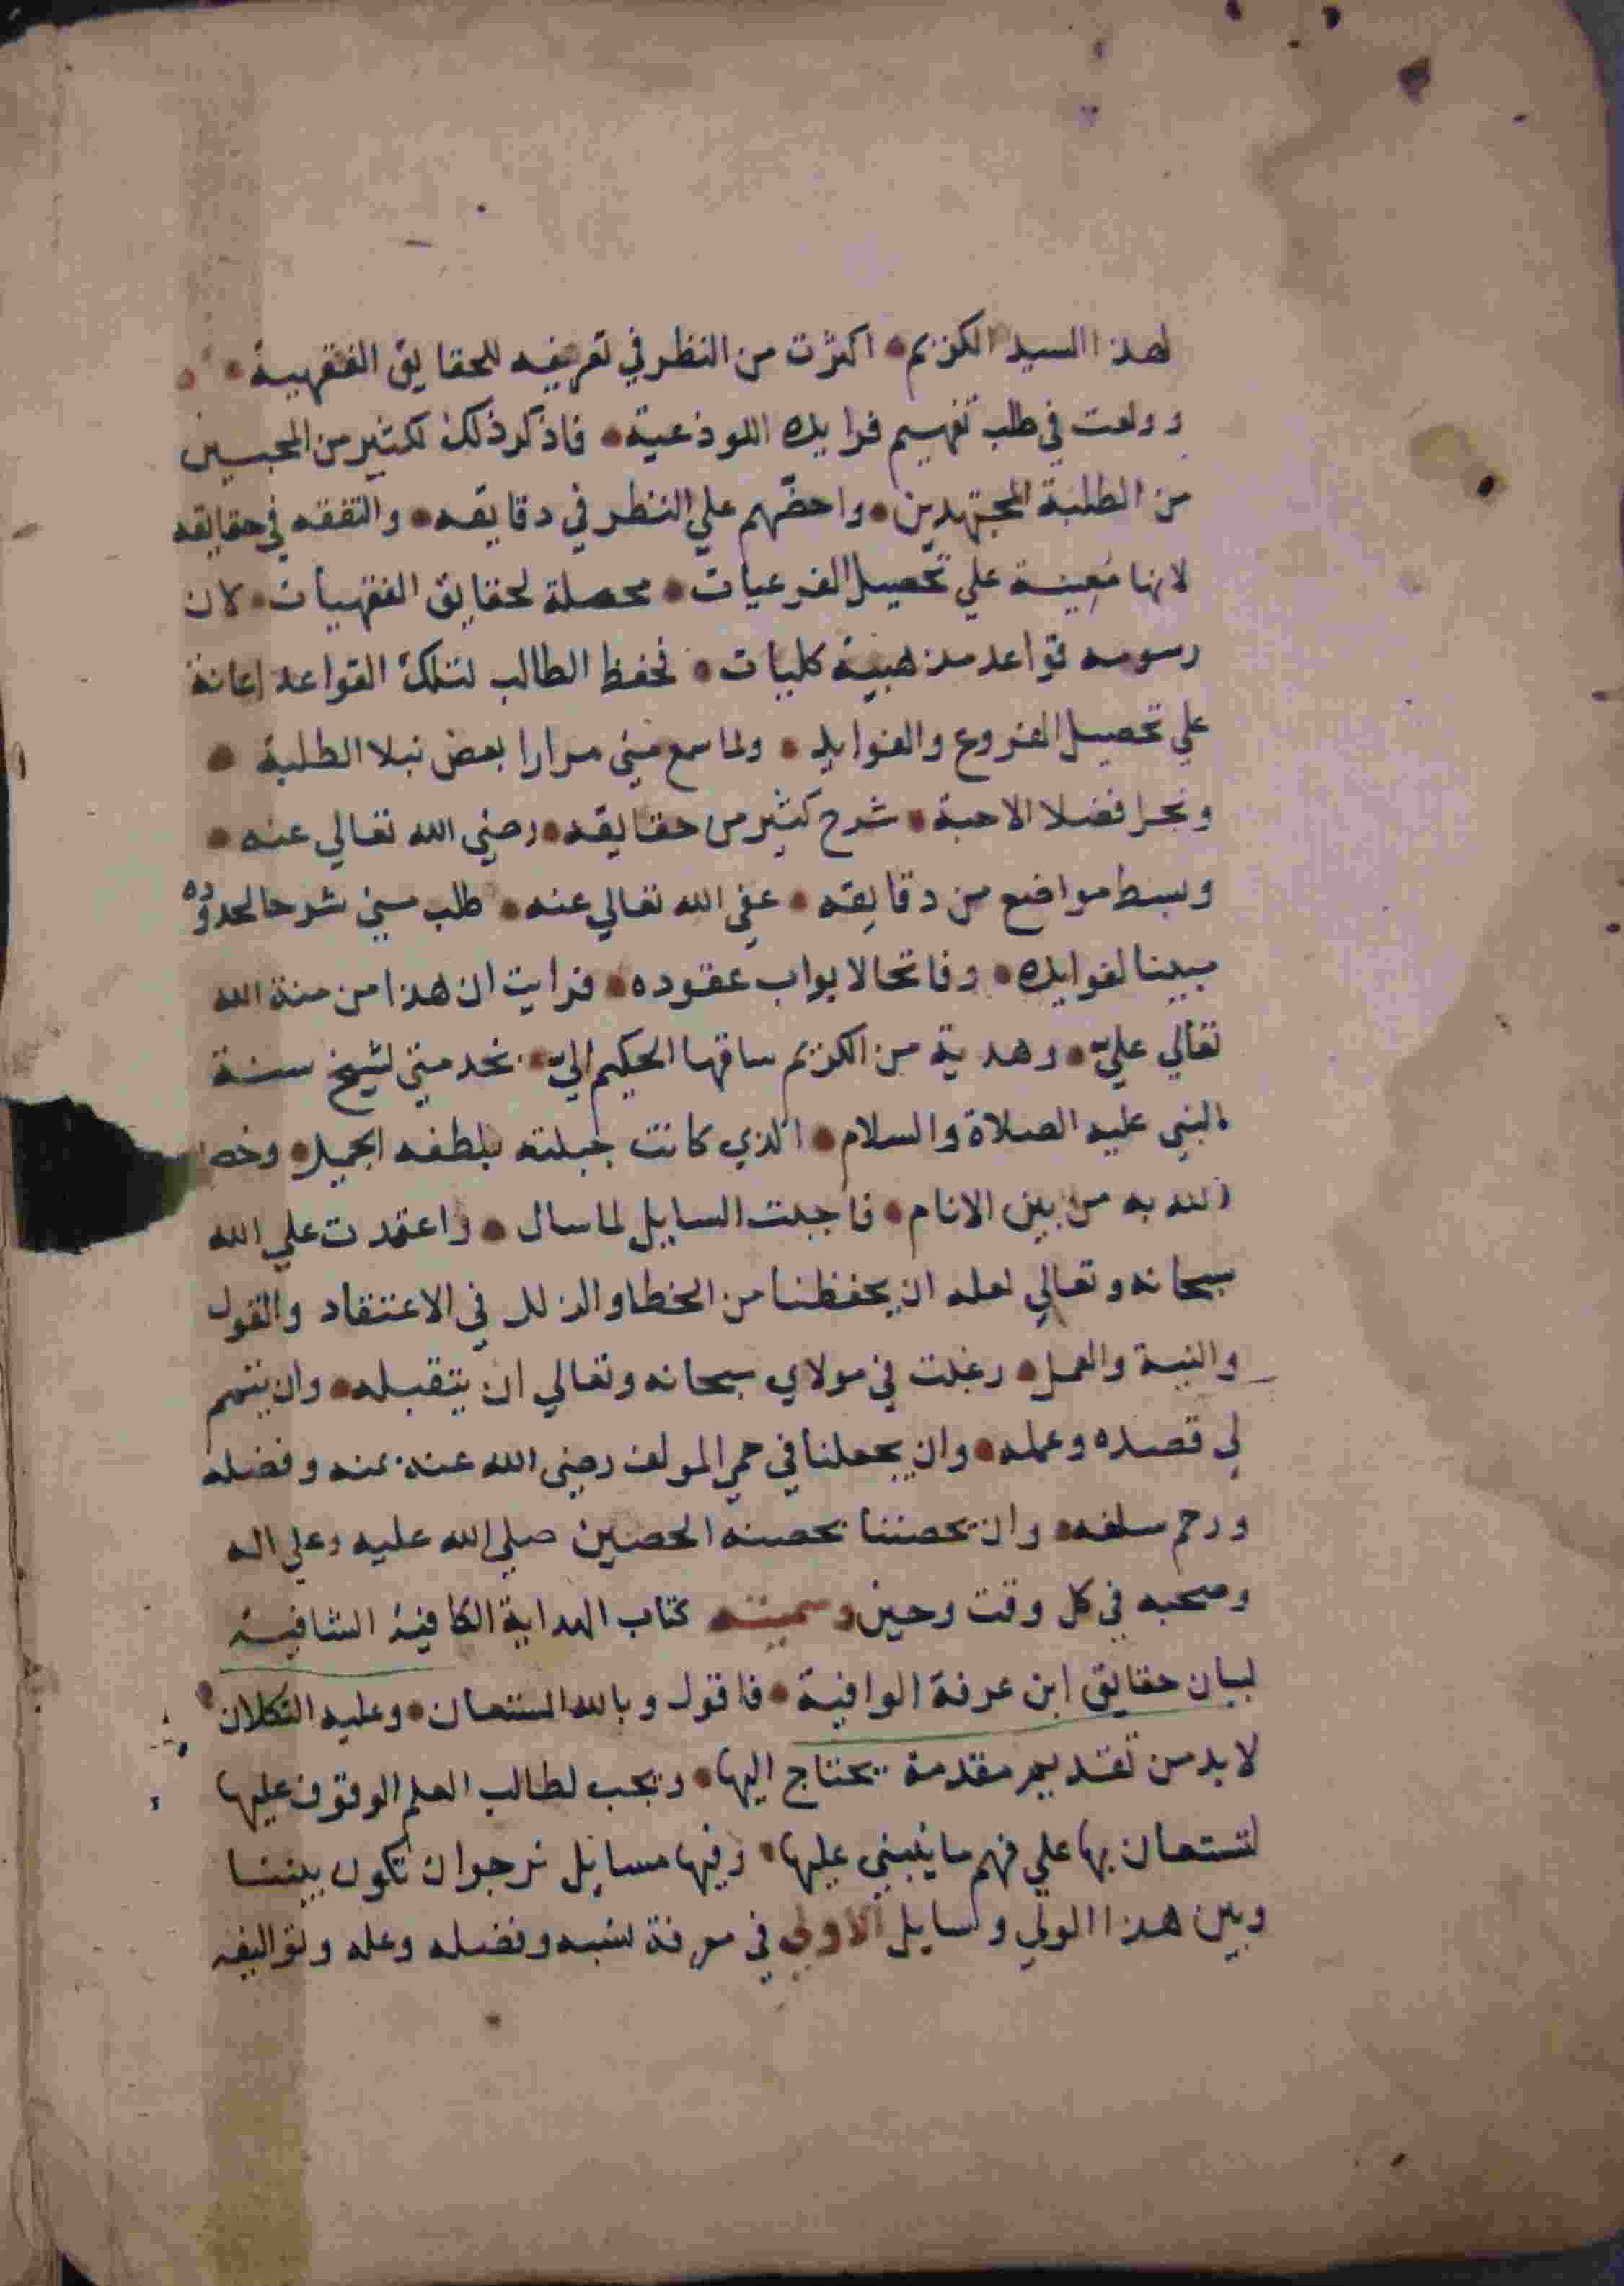 لهذا السيد الكريم • اكثرت من النظر في تعريفه للحقايق الفقهية •
وولعت في طلب تفهيم فرايده اللوذعية • فاذكر ذلك لكثير من المحبين
من الطلبة المجتهدين • واحضّهم علي النظر في دقايقه • والتفقه في حقايقه
لانها مُعِينة علي تحصيل الفرعيات • محصلة لحقايق الفقهيات • لان
رسومه قواعد مذهبية كليات • فحفظ الطالب لتلك القواعد اعانة
علي تحصيل الفروع والفوايد • ولما سمع مني مرارا بعض نبلا الطلبة •
ونجرا فضلا الاحبة • شرح كثير من حقايقه • رضي الله تعالي عنه •
وبسط مواضع من دقايقه • عفي الله تعالي عنه • طلب مني شرحا لحدوده
مبينا لفوايده • وفاتحا لابواب عقوده • فرايت ان هذا من منة الله
تعالي عليّ • وهدية من الكريم ساقها الحكيم اليّ • بخدمتي لشيخ سنة
النبي عليه الصلاة والسلام • الذي كانت جبلته بلطفه الجميل • وخص
الله به من بين الانام • فاجبت السايل لما سال • واعتمدت علي الله
سبحانه وتعالي لعله ان يحفظنا من الخطا والزلل في الاعتقاد والقول
والنية والعمل • رغبت في مولاي سبحانه وتعالي ان يتقبله • وان يتمم
لي قصده وعمله • وان يجعلنا في حمي المولف رضي الله عنه بمنه وفضله
ورحم سلفه • وان يحصننا بحصنه الحصين صلي الله عليه وعلي اله
وصحبه في كل وقت وحين وسميته كتاب الهداية الكافية الشافية
لبيان حقايق ابن عرفة الوافية • فاقول وبالله المستعان • وعليه التكلان
لا بد من تقديم مقدمة يحتاج اليها • ويجب لطالب العلم الوقوف عليها
لتستعان بها علي فهم ما ينبني عليها • وفيها مسايل نرجوا ان تكون بيننا
وبين هذا الولي وسايل الاولي في معرفة نسبه وفضله وعله وتواليفه